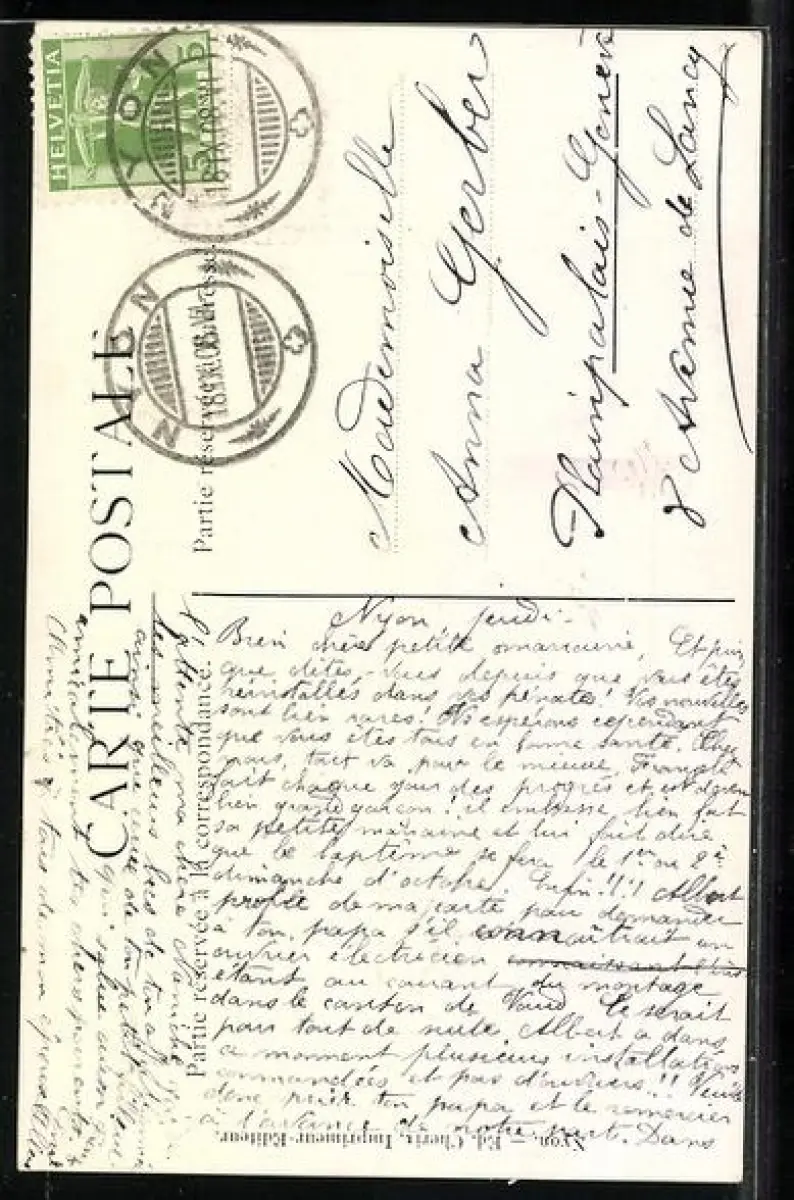 CARTE POSTALE
Partie réservée à la correspondance.
Partie réservée à l'adresse.
HELVETIA
5 5
NYON
18.IX.08.VI
NYON
18.IX.08.VI
Mademoiselle
Anna Gerber
Plainpalais-Genève
8 Avenue de Lancy
Nyon, jeudi.
Bien chère petite marraine, Et puis
que dites-vous depuis que vous êtes
réinstallés dans vos pénates! Vos nouvelles
sont bien rares! Ns espérons cependant
que vous êtes tous en bonne santé. Chez
nous, tout va pour le mieux. François
fait chaque jour des progrès et est devenu
bien grand garçon! il embrasse bien fort
sa petite marraine et lui fait dire
que le baptême se fera le 1er ou 2e
dimanche d'octobre. Enfin!!! Albert
profite de ma carte pour demander
à ton papa s'il connaîtrait un
ouvrier électricien
étant au courant du montage
dans le canton de Vaud. Ce serait
pour tout de suite. Albert a dans
ce moment plusieurs installations
commandées et pas d'ouvriers!! Veuille
donc prier ton papa et le remercier
à l'avance de notre part. Dans
l'attente, ma chère
les meilleurs de ta
ainsi que de ton petit filleul
qui
amicalement tes chers parents
à tous de mon époux
Nyon. — Ed. Cherix, Imprimeur-Editeur.